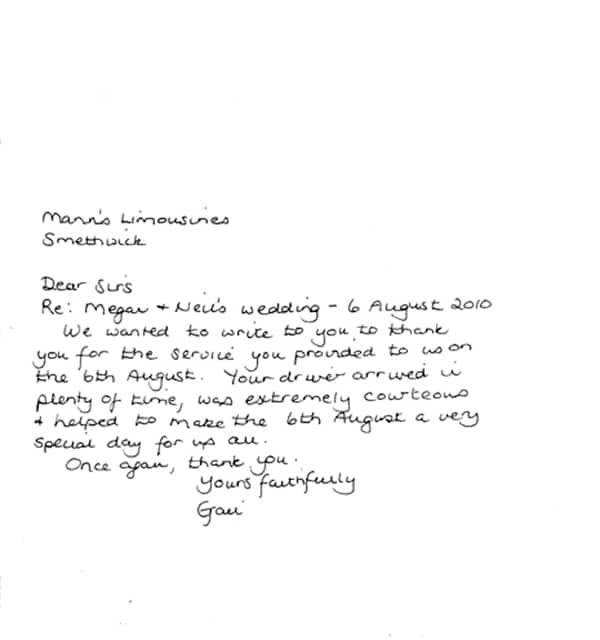 Mann's Limousines
Smethwick
Dear Sirs
Re: Megan + Neil's wedding - 6 August 2010
We wanted to write to you to thank
you for the service you provided to us on
the 6th August. Your driver arrived in
plenty of time, was extremely courteous
+ helped to make the 6th August a very
special day for us all.
Once again, thank you.
Yours faithfully